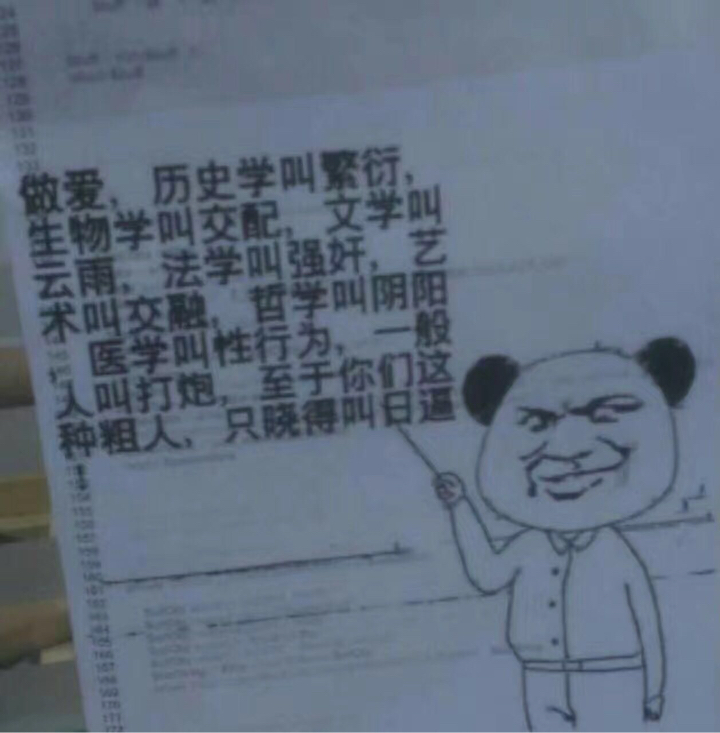 做爱，历史学叫繁衍，
生物学叫交配，文学叫
云雨，法学叫强奸，艺
术叫交融，哲学叫阴阳
，医学叫性行为，一般
人叫打炮，至于你们这
种粗人，只晓得叫日逼